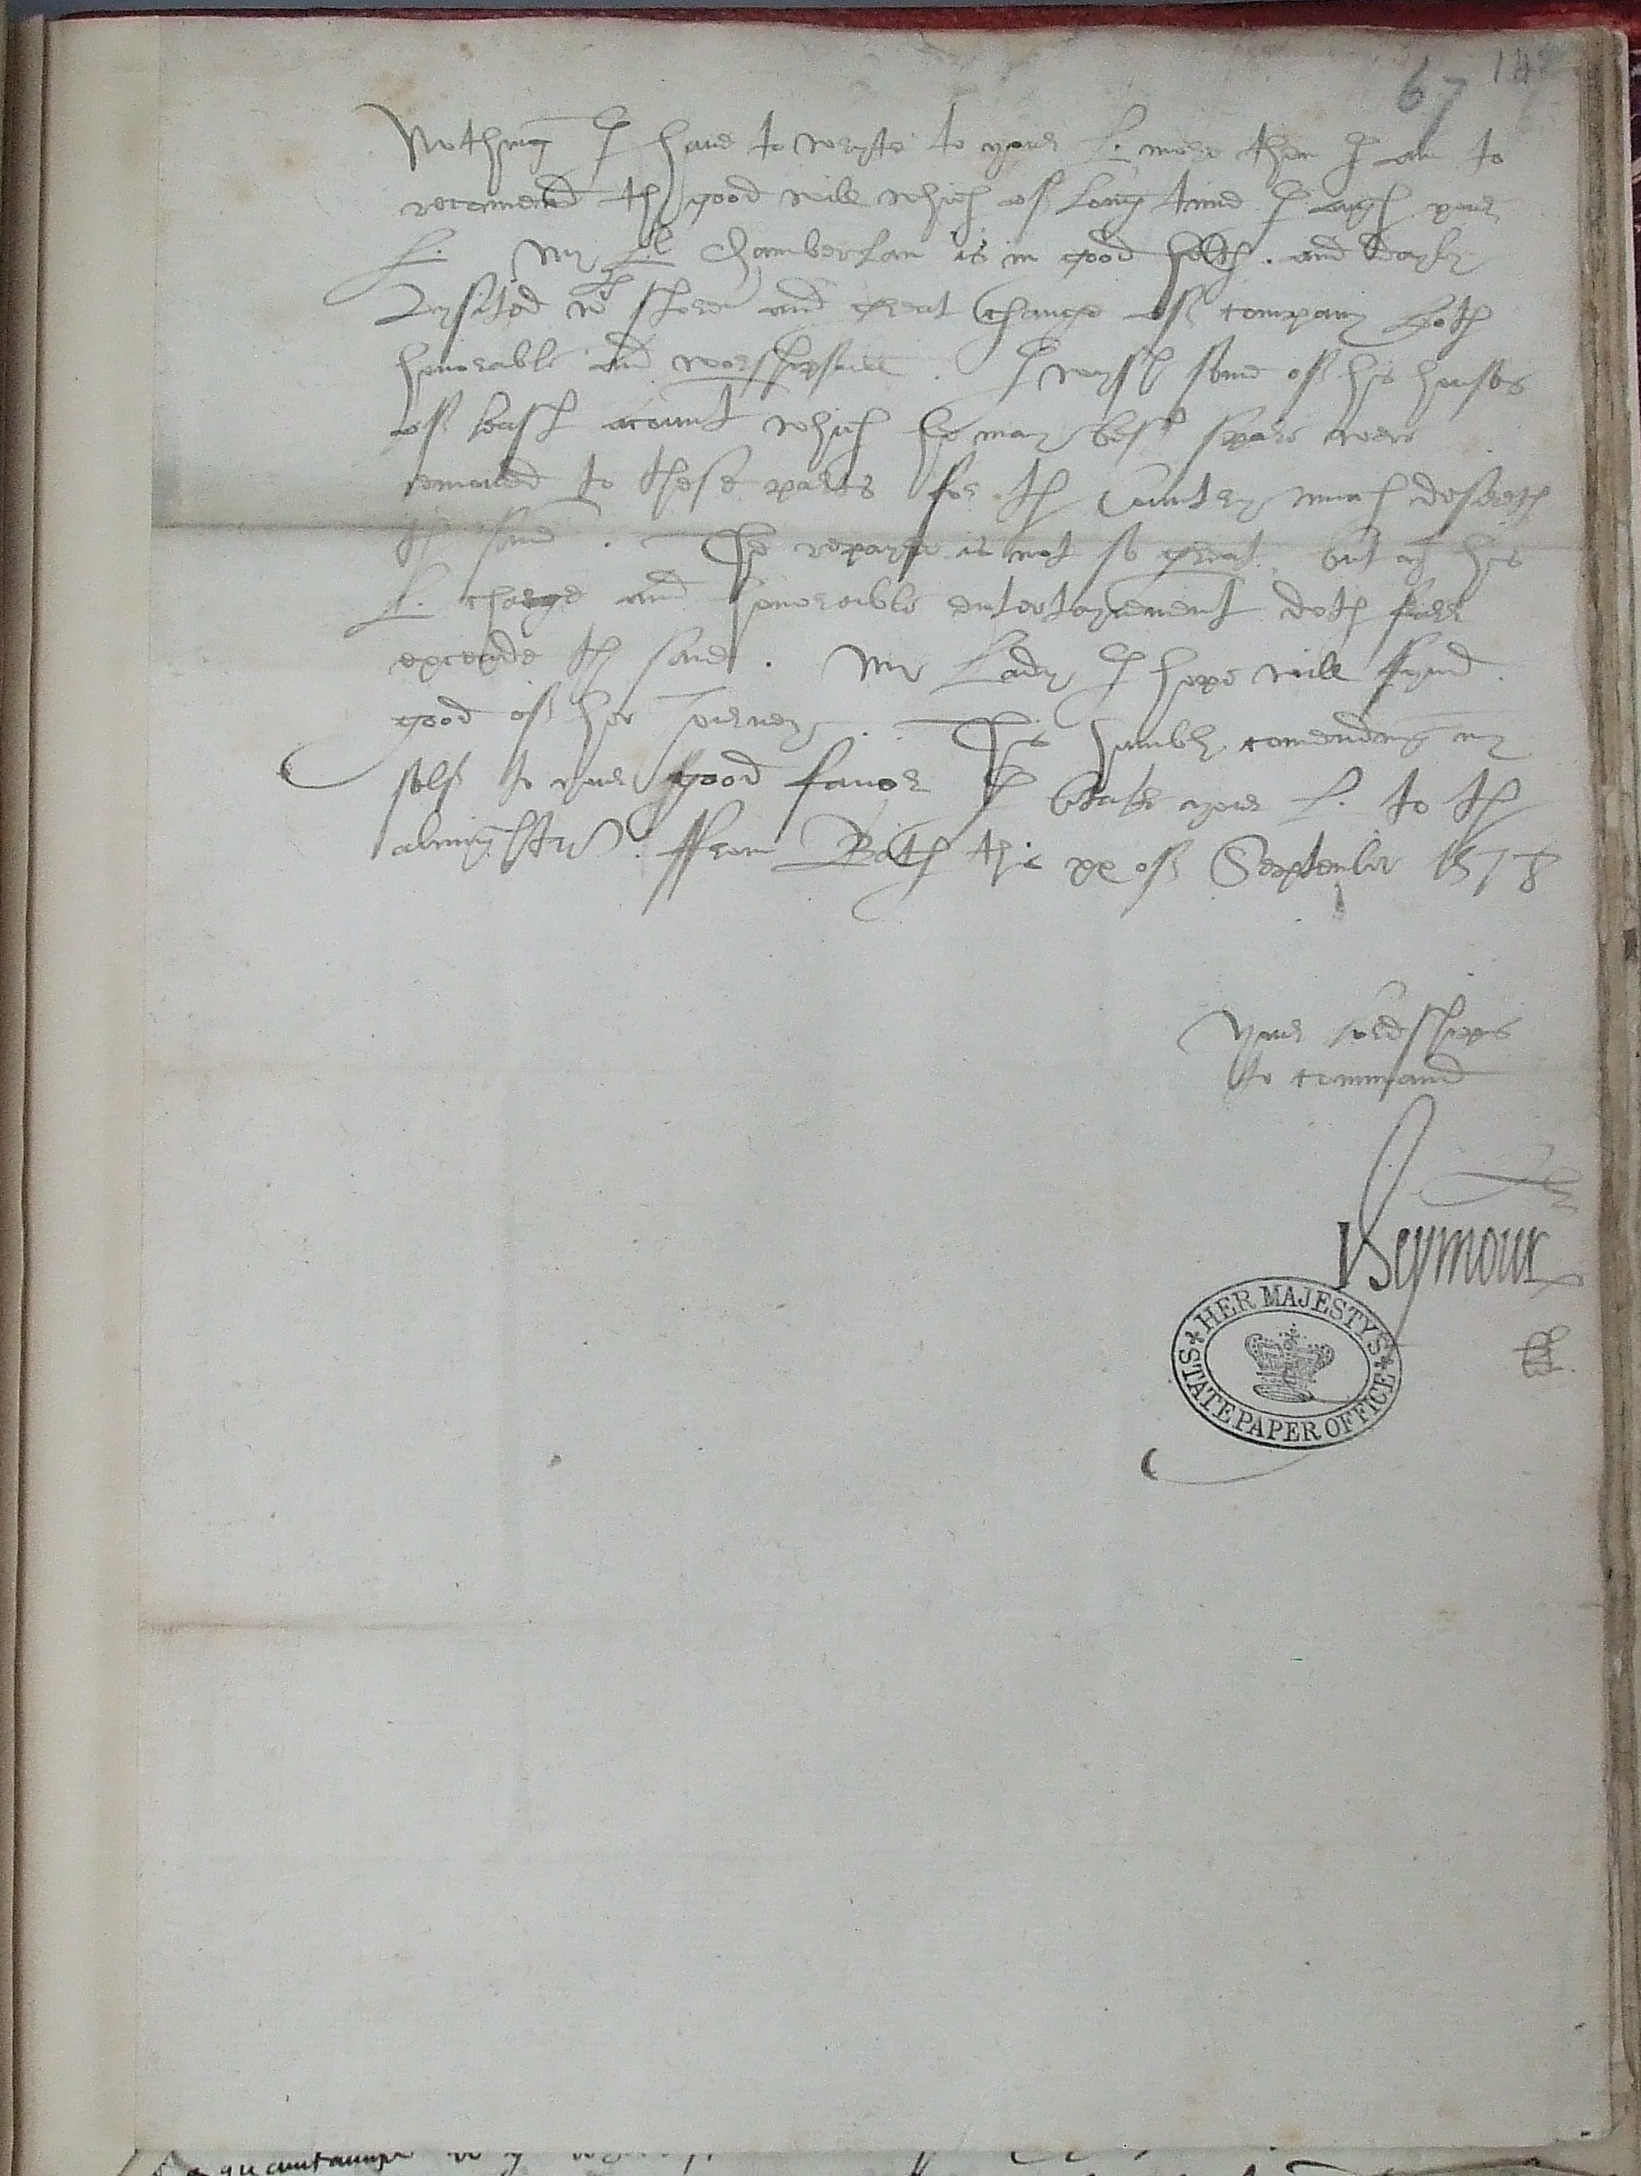 67 148
Nothing I have to wryte to your L. more then I am to
recomend th good will which of long time I ough your
L. My L. Chamberlan is in good helth. and dayly
vysited wth store and great change of company both
honorable and worshipfull. I wysh some of his houses
of least acount which he may best spare were
removed to these partes for th Countrey much desireth
th same. The repayre is not so great. but yt his
L. charge and honorable entertaynement doth farr
exceede th same. My Lady I hope will fynd
good of her Journey. Ths humbly comending my
self to your good favor I betake your L. to th
almightie. ffrom Bath this xx of September 1578
Your Lordshipps
to command
Seymour
HER MAJESTY'S STATE PAPER OFFICE